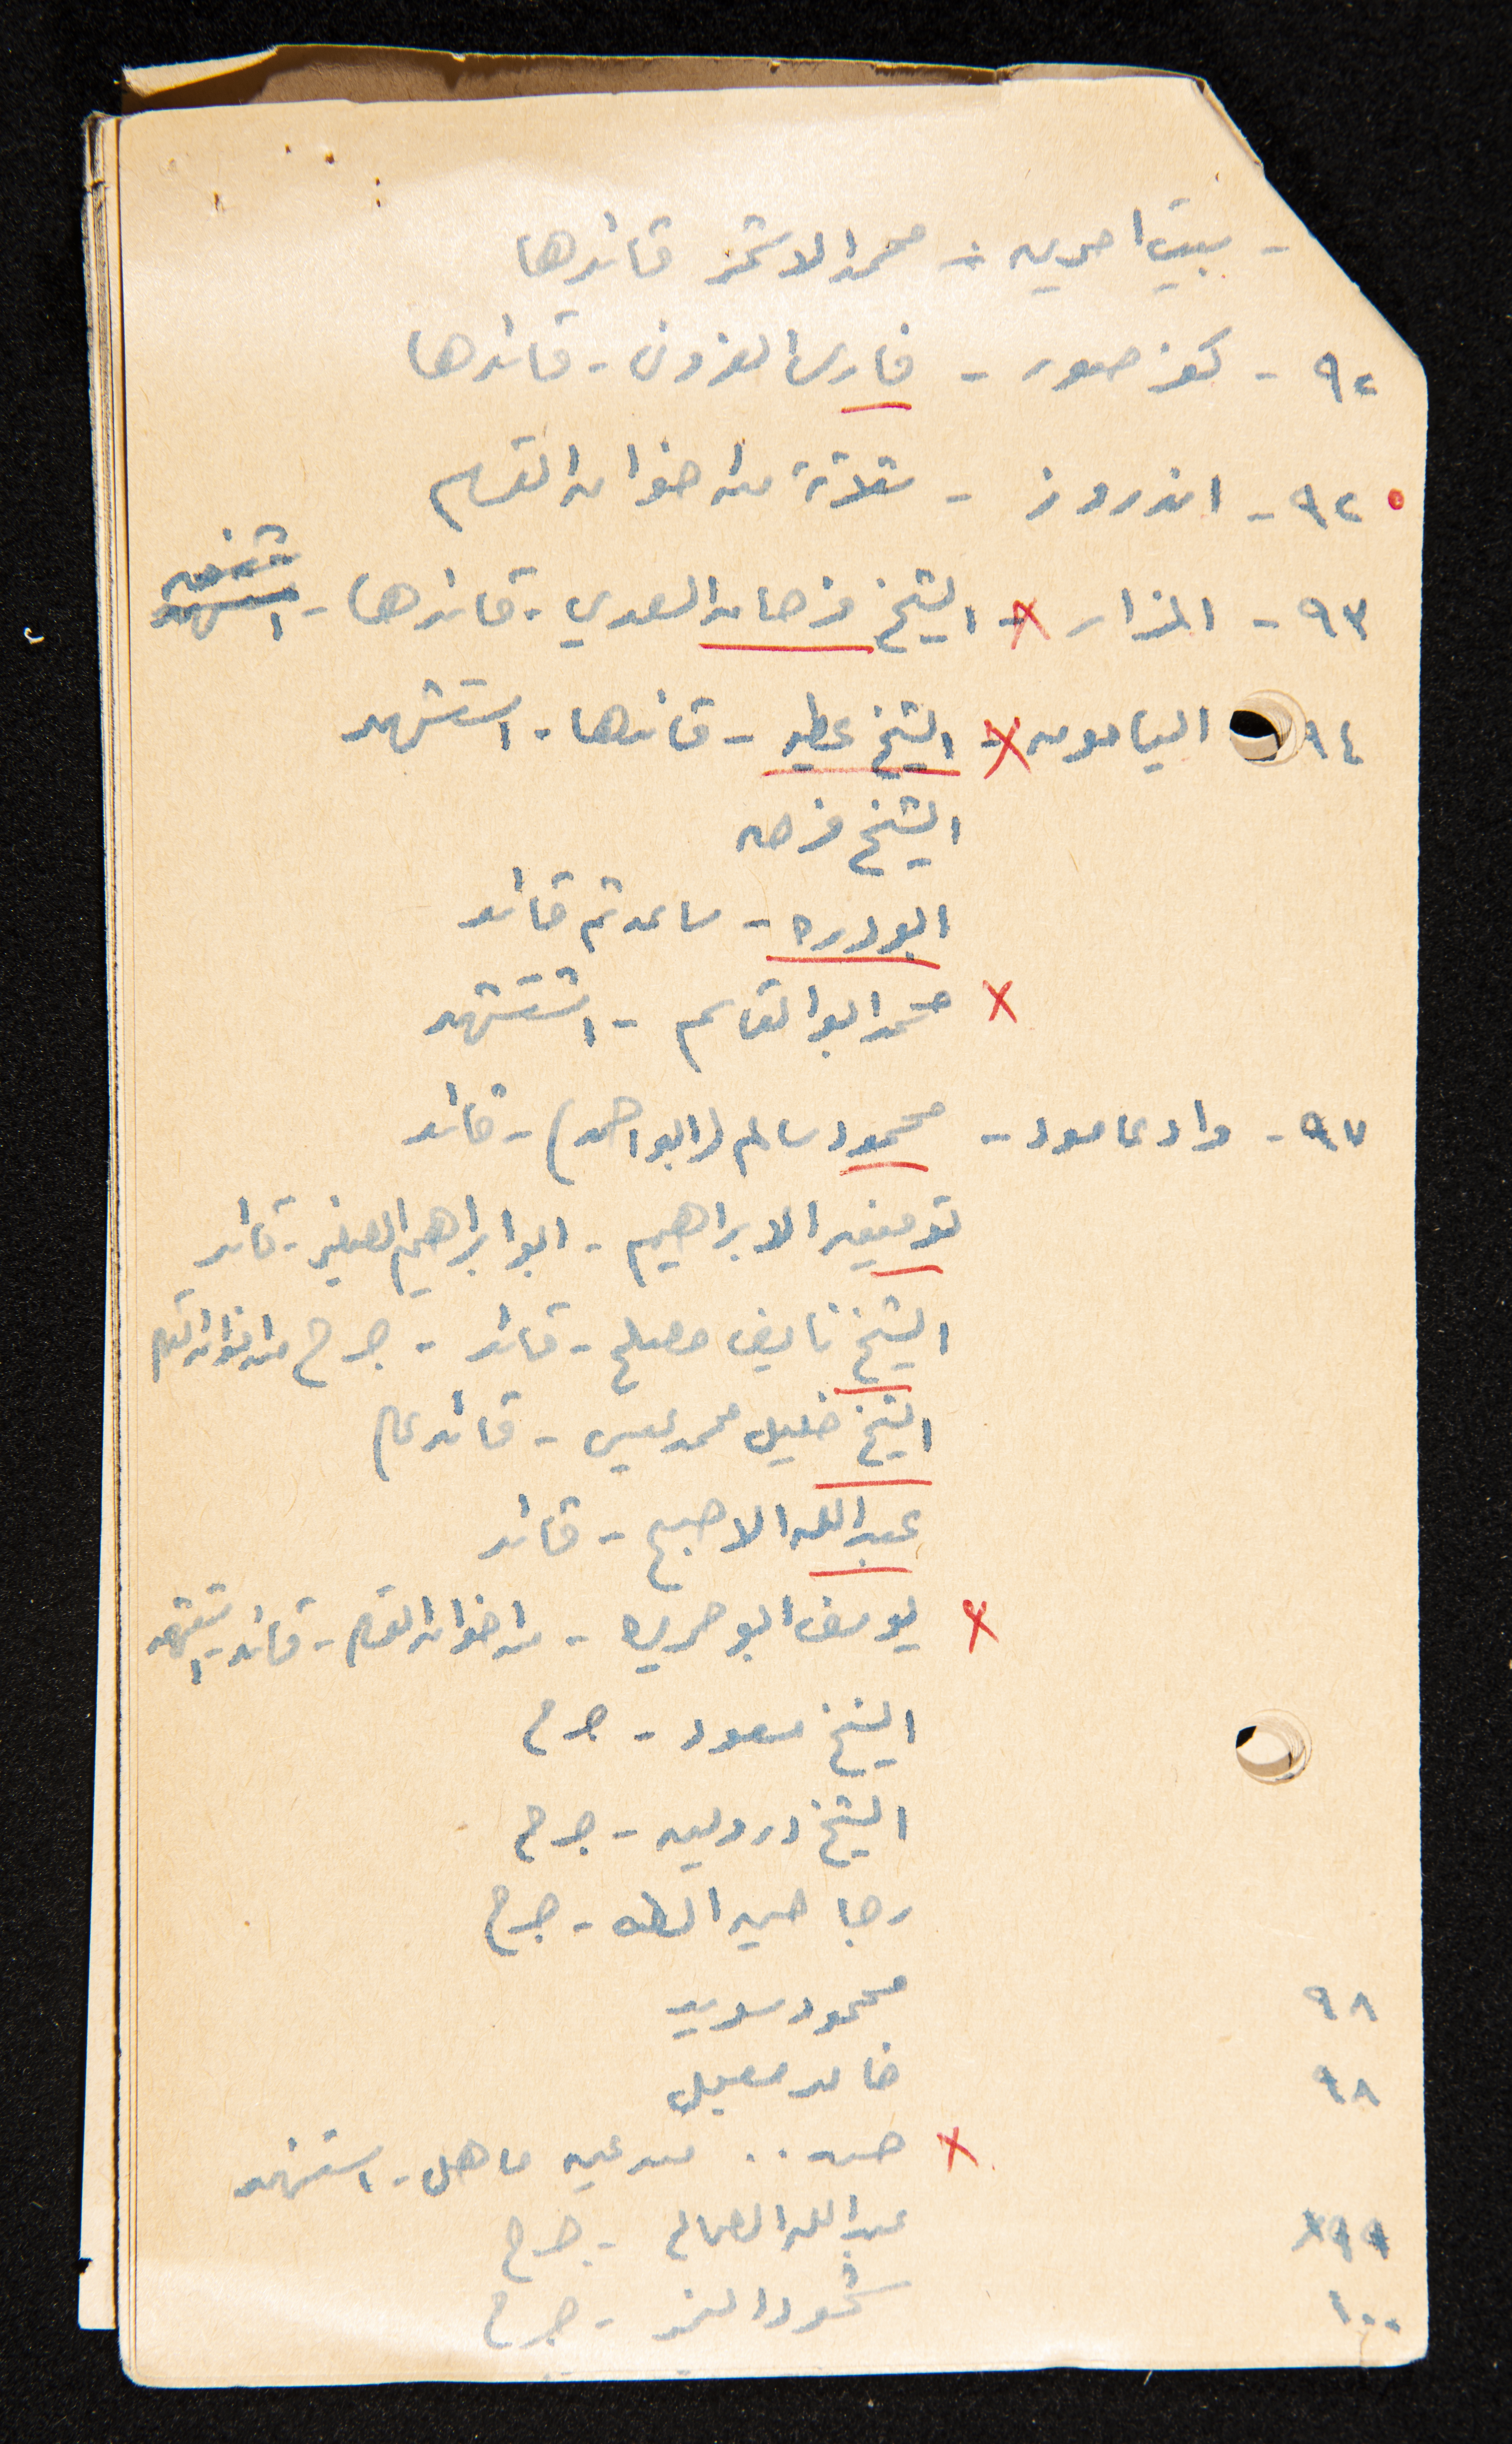 - بيت امرين - محمد الاشقر قائدها
٩٢ - كفر صور - فارس العزوني - قائدها
٩٢ - اندروز - ثلاثة من اخوان القسام
٩٣ - المزار - الشيخ فرحان السعدي - قائدها -
٩٤ اليامون - الشيخ عطيه - قائدها - استشهد
الشيخ فرحان
ابو دره - ساعد ثم قائد
محمد ابو القاسم - استشهد
٩٧ - وادعامود - محمود سالم (ابو احمد) - قائد
توفيق الابراهيم - ابو ابراهيم الصغير - قائد
الشيخ نايف مصلح - قائد - جرح من اخوان القسام
الشيخ خليل محمد عيسى - قائد عام
عبد الله الاصبح - قائد
يوسف ابو دره - من اخوان القسام - قائد - استشهد
الشيخ مسعود - جرح
الشيخ درويش - جرح
رجا - جرح
٩٨ محمود سويد
٩٨ خالد
حسن .. من عين ماهل - استشهد
٩٩ عبد الله الصالح - جرح
١٠٠ - جرح